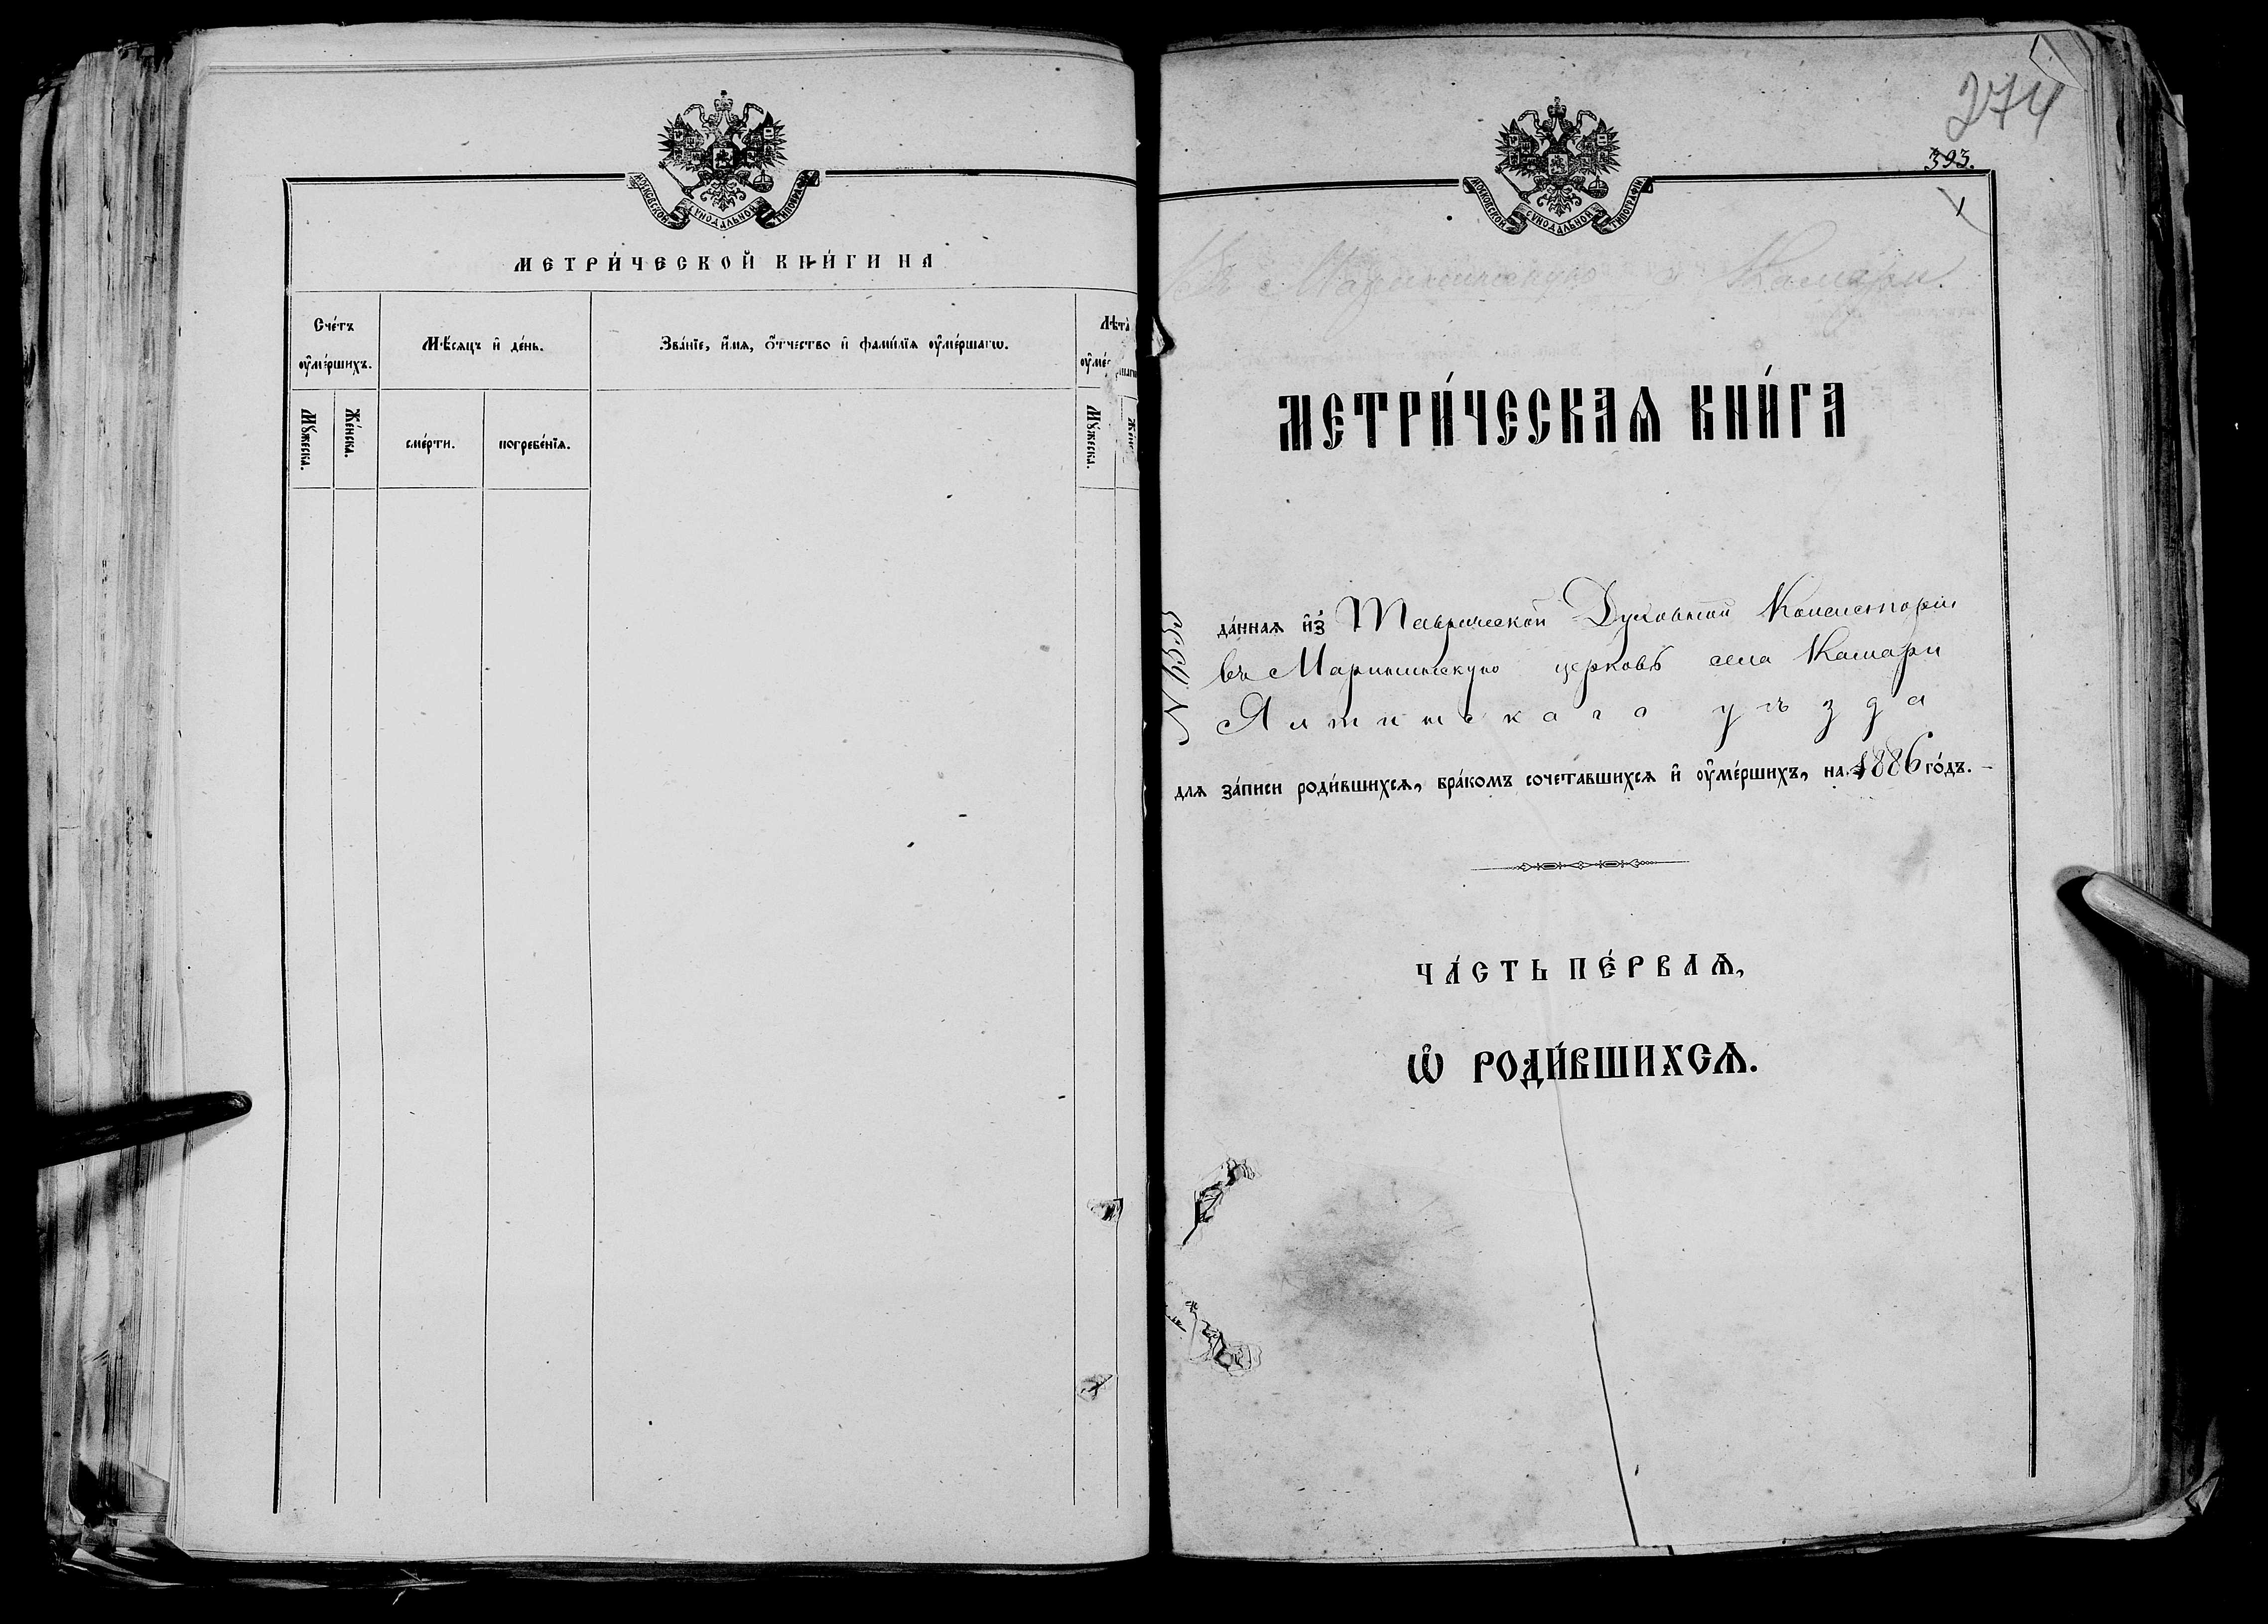 МОСКОВСКОЙ СѴНОДАЛЬНОЙ ТИПОГРАФІИ
МЕТРИ́ЧЕСКОЙ КНИ́ГИ НА
Сче́тъ ᲂу҆ме́ршихъ.
Мѣ́сяцъ и҆ де́нь.
Зва́нїе, и҆́мя, ѻ҆́тчество и҆ фами́лїя ᲂу҆ме́ршагѡ.
Лѣта̀
Мꙋ́жеска.
Же́нска.
сме́рти.
погребе́нїя.
Мꙋ́жеска.
274
393.
1
МОСКОВСКОЙ СѴНОДАЛЬНОЙ ТИПОГРАФІИ
Въ Маріинскую с. Камары.
МЕТРИ́ЧЕСКАѦ КНИ́ГА
да́ннаѧ и҆з̾ Таврической Духовной Консисторіи
въ Маріинскую церковь села Камары
Ялтинскаго уѣзда
для за́писи роди́вшихсѧ, бра́комъ сочета́вшихсѧ и҆ ᲂу҆ме́ршихъ, на 1886 го́дъ.
ЧА́СТЬ ПЕ́РВАѦ,
Ѡ҆ РОДИ́ВШИХСѦ.